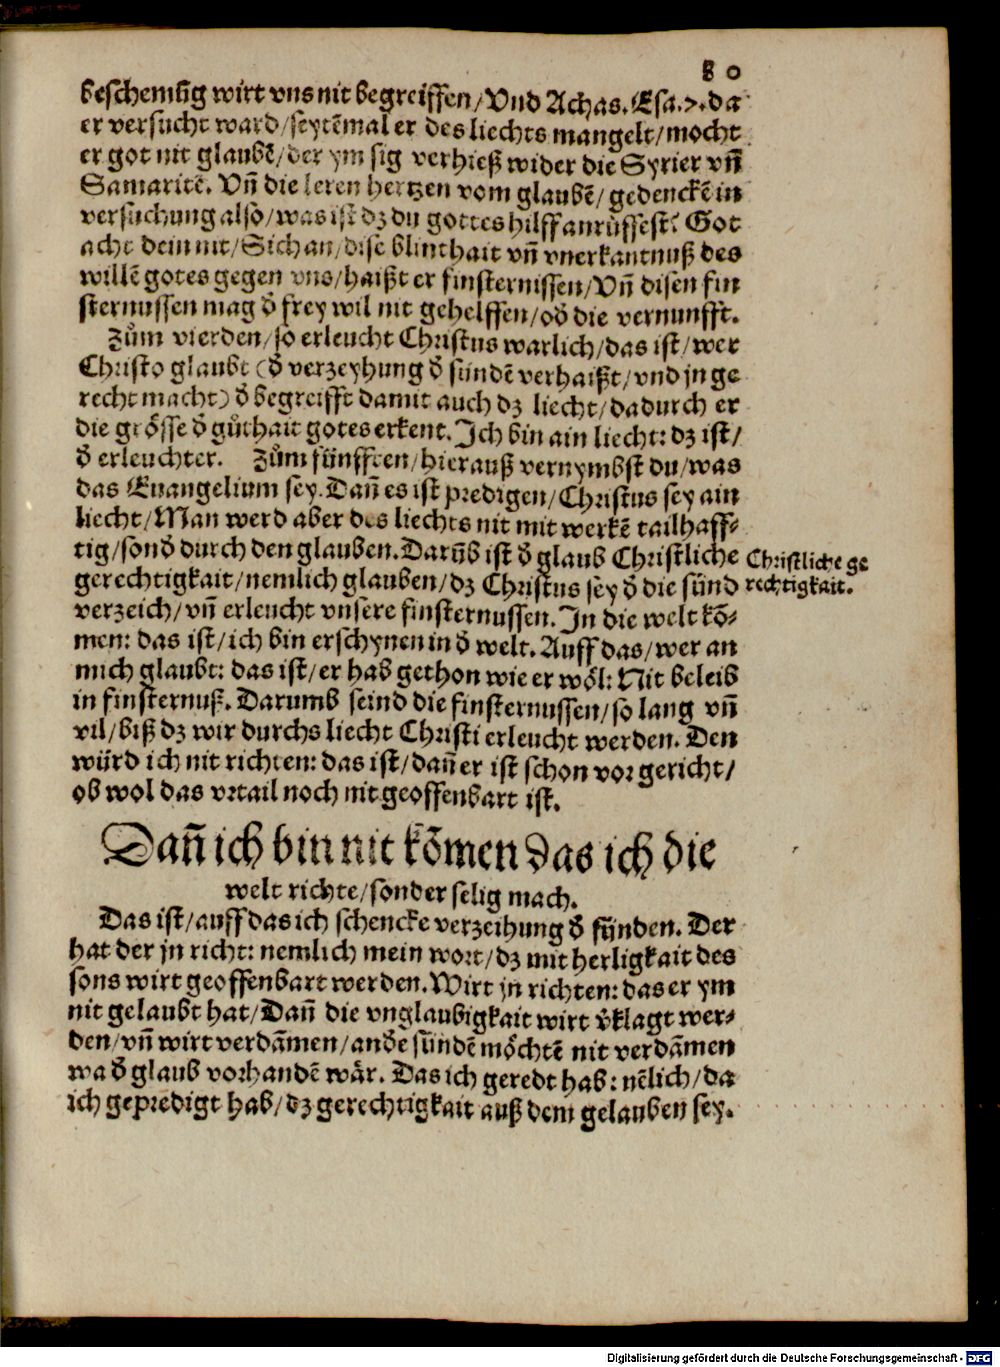 80
beschemūg wirt vns nit begreiffen/Vnd Achas. Esa.7. da
er versucht ward/seytēmal er des liechts mangelt/mocht
er got nit glaubē/der ym sig verhieß wider die Syrier vñ
Samaritē. Vñ die leren hertzen vom glaubē/gedenckē in
versuchung also/was ist dz du gottes hilff anrůffest? Got
acht dein nit/Sich an/dise blinthait vñ vnerkantnuß des
willē gotes gegen vns/haißt er finsternissen/Vñ disen fin
sternussen mag d̛ frey wil nit gehelffen/od̛ die vernunfft.
Zům vierden/so erleucht Christus warlich/das ist/wer
Christo glaubt (d̛ verzeyhung d̛ sündē verhaißt/vnd jn ge
recht macht) d̛ begreifft damit auch dz liecht/dadurch er
die grösse d̛ gůthait gotes erkent. Ich bin ain liecht: dz ist/
d̛ erleuchter. Zům fünfften/hierauß vernymbst du/was
das Euangelium sey. Dañ es ist predigen/Christus sey ain
liecht/Man werd aber des liechts nit mit werkē tailhaff-
tig/sond̛ durch den glauben. Darūb ist d̛ glaub Christliche
gerechtigkait/nemlich glauben/dz Christus sey d̛ die sünd
verzeich/vñ erleucht vnsere finsternussen. In die welt kō-
men: das ist/ich bin erschynen in d̛ welt. Auff das/wer an
mich glaubt: das ist/er hab gethon wie er wöl: Nit beleib
in finsternuß. Darumb seind die finsternussen/so lang vñ
vil/biß dz wir durchs liecht Christi erleucht werden. Den
würd ich nit richten: das ist/dañ er ist schon vor gericht/
ob wol das vrtail noch nit geoffenbart ist.
Christliche ge
rechtigkait.
Dañ ich bin nit kōmen das ich die
welt richte/sonder selig mach.
Das ist/auff das ich schencke verzeihung d̛ sünden. Der
hat der jn richt: nemlich mein wort/dz mit herligkait des
sons wirt geoffenbart werden. Wirt jn richten: das er ym
nit gelaubt hat/Dañ die vnglaubigkait wirt v̛klagt wer-
den/vñ wirt verdāmen/and̛e sündē möchtē nit verdāmen
wa d̛ glaub vorhandē wär. Das ich geredt hab: nēlich/da
ich gepredigt hab/dz gerechtigkait auß dem gelauben sey.
Digitalisierung gefördert durch die Deutsche Forschungsgemeinschaft - DFG